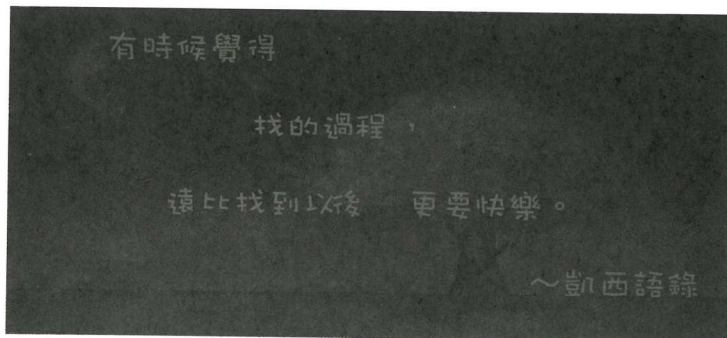 有時候覺得
找的過程，
遠比找到以後　更要快樂。
～凱西語錄